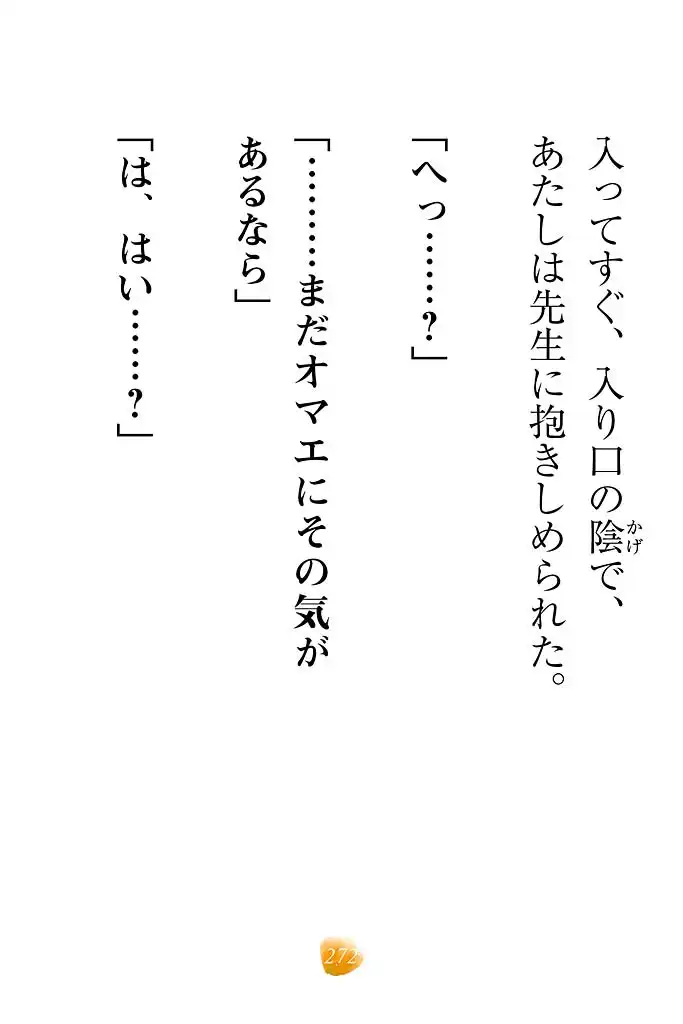 入ってすぐ、入り口の陰で、
かげ
あたしは先生に抱きしめられた。
「へっ……?」
「…………まだオマエにその気が
あるなら」
「は、はい……?」
272